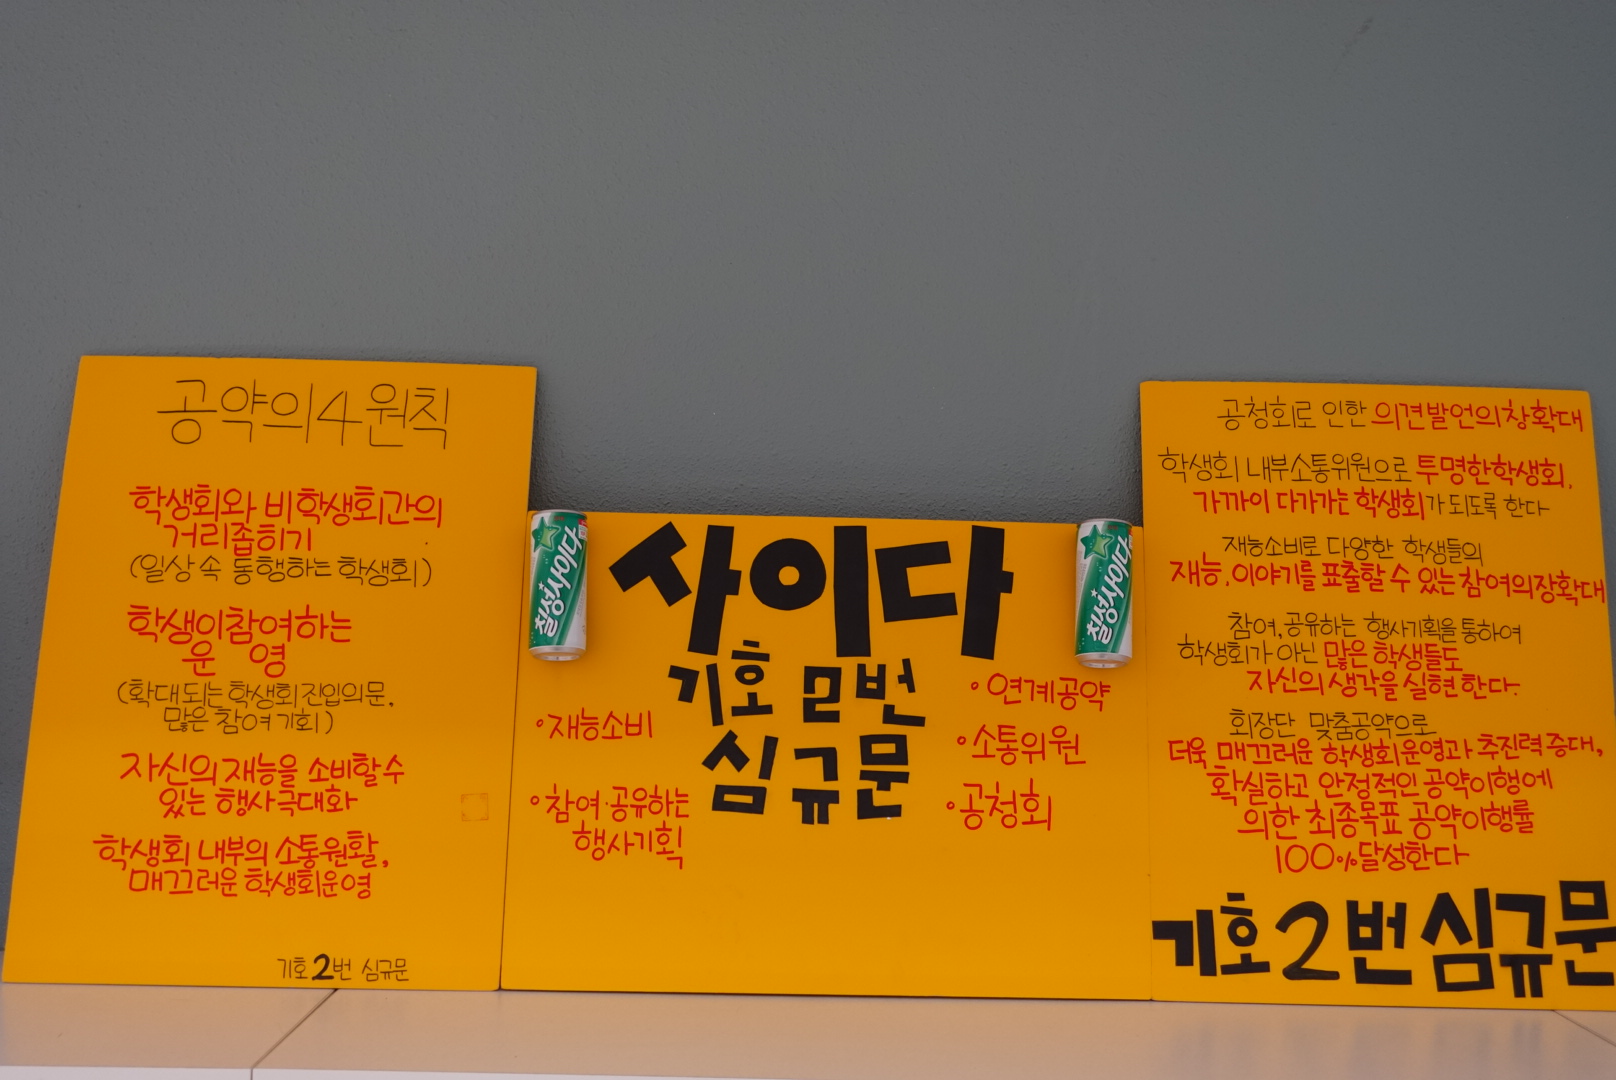 공약의 4원칙
학생회와 비학생회간의
거리좁히기
(일상 속 동행하는 학생회)
학생이참여하는
운 영
(확대되는 학생회 진입의 문,
많은 참여 기회)
자신의 재능을 소비할 수
있는 행사극대화
학생회 내부의 소통원활,
매끄러운 학생회운영
기호 2번 심규문
칠성사이다
사이다
기호 2번
심규문
•재능소비
•참여·공유하는
행사기획
•연계공약
•소통위원
•공청회
칠성사이다
공청회로 인한 의견발언의 장확대
학생회 내부소통위원으로 투명한학생회,
가까이 다가가는 학생회가 되도록 한다
재능소비로 다양한 학생들의
재능, 이야기를 표출할 수 있는 참여의장확대
참여, 공유하는 행사기획을 통하여
학생회가 아닌 많은 학생들도
자신의 생각을 실현한다.
회장단 맞춤공약으로
더욱 매끄러운 학생회운영과 추진력증대,
확실하고 안정적인 공약이행에
의한 최종목표 공약이행률
100%달성한다
기호2번 심규문